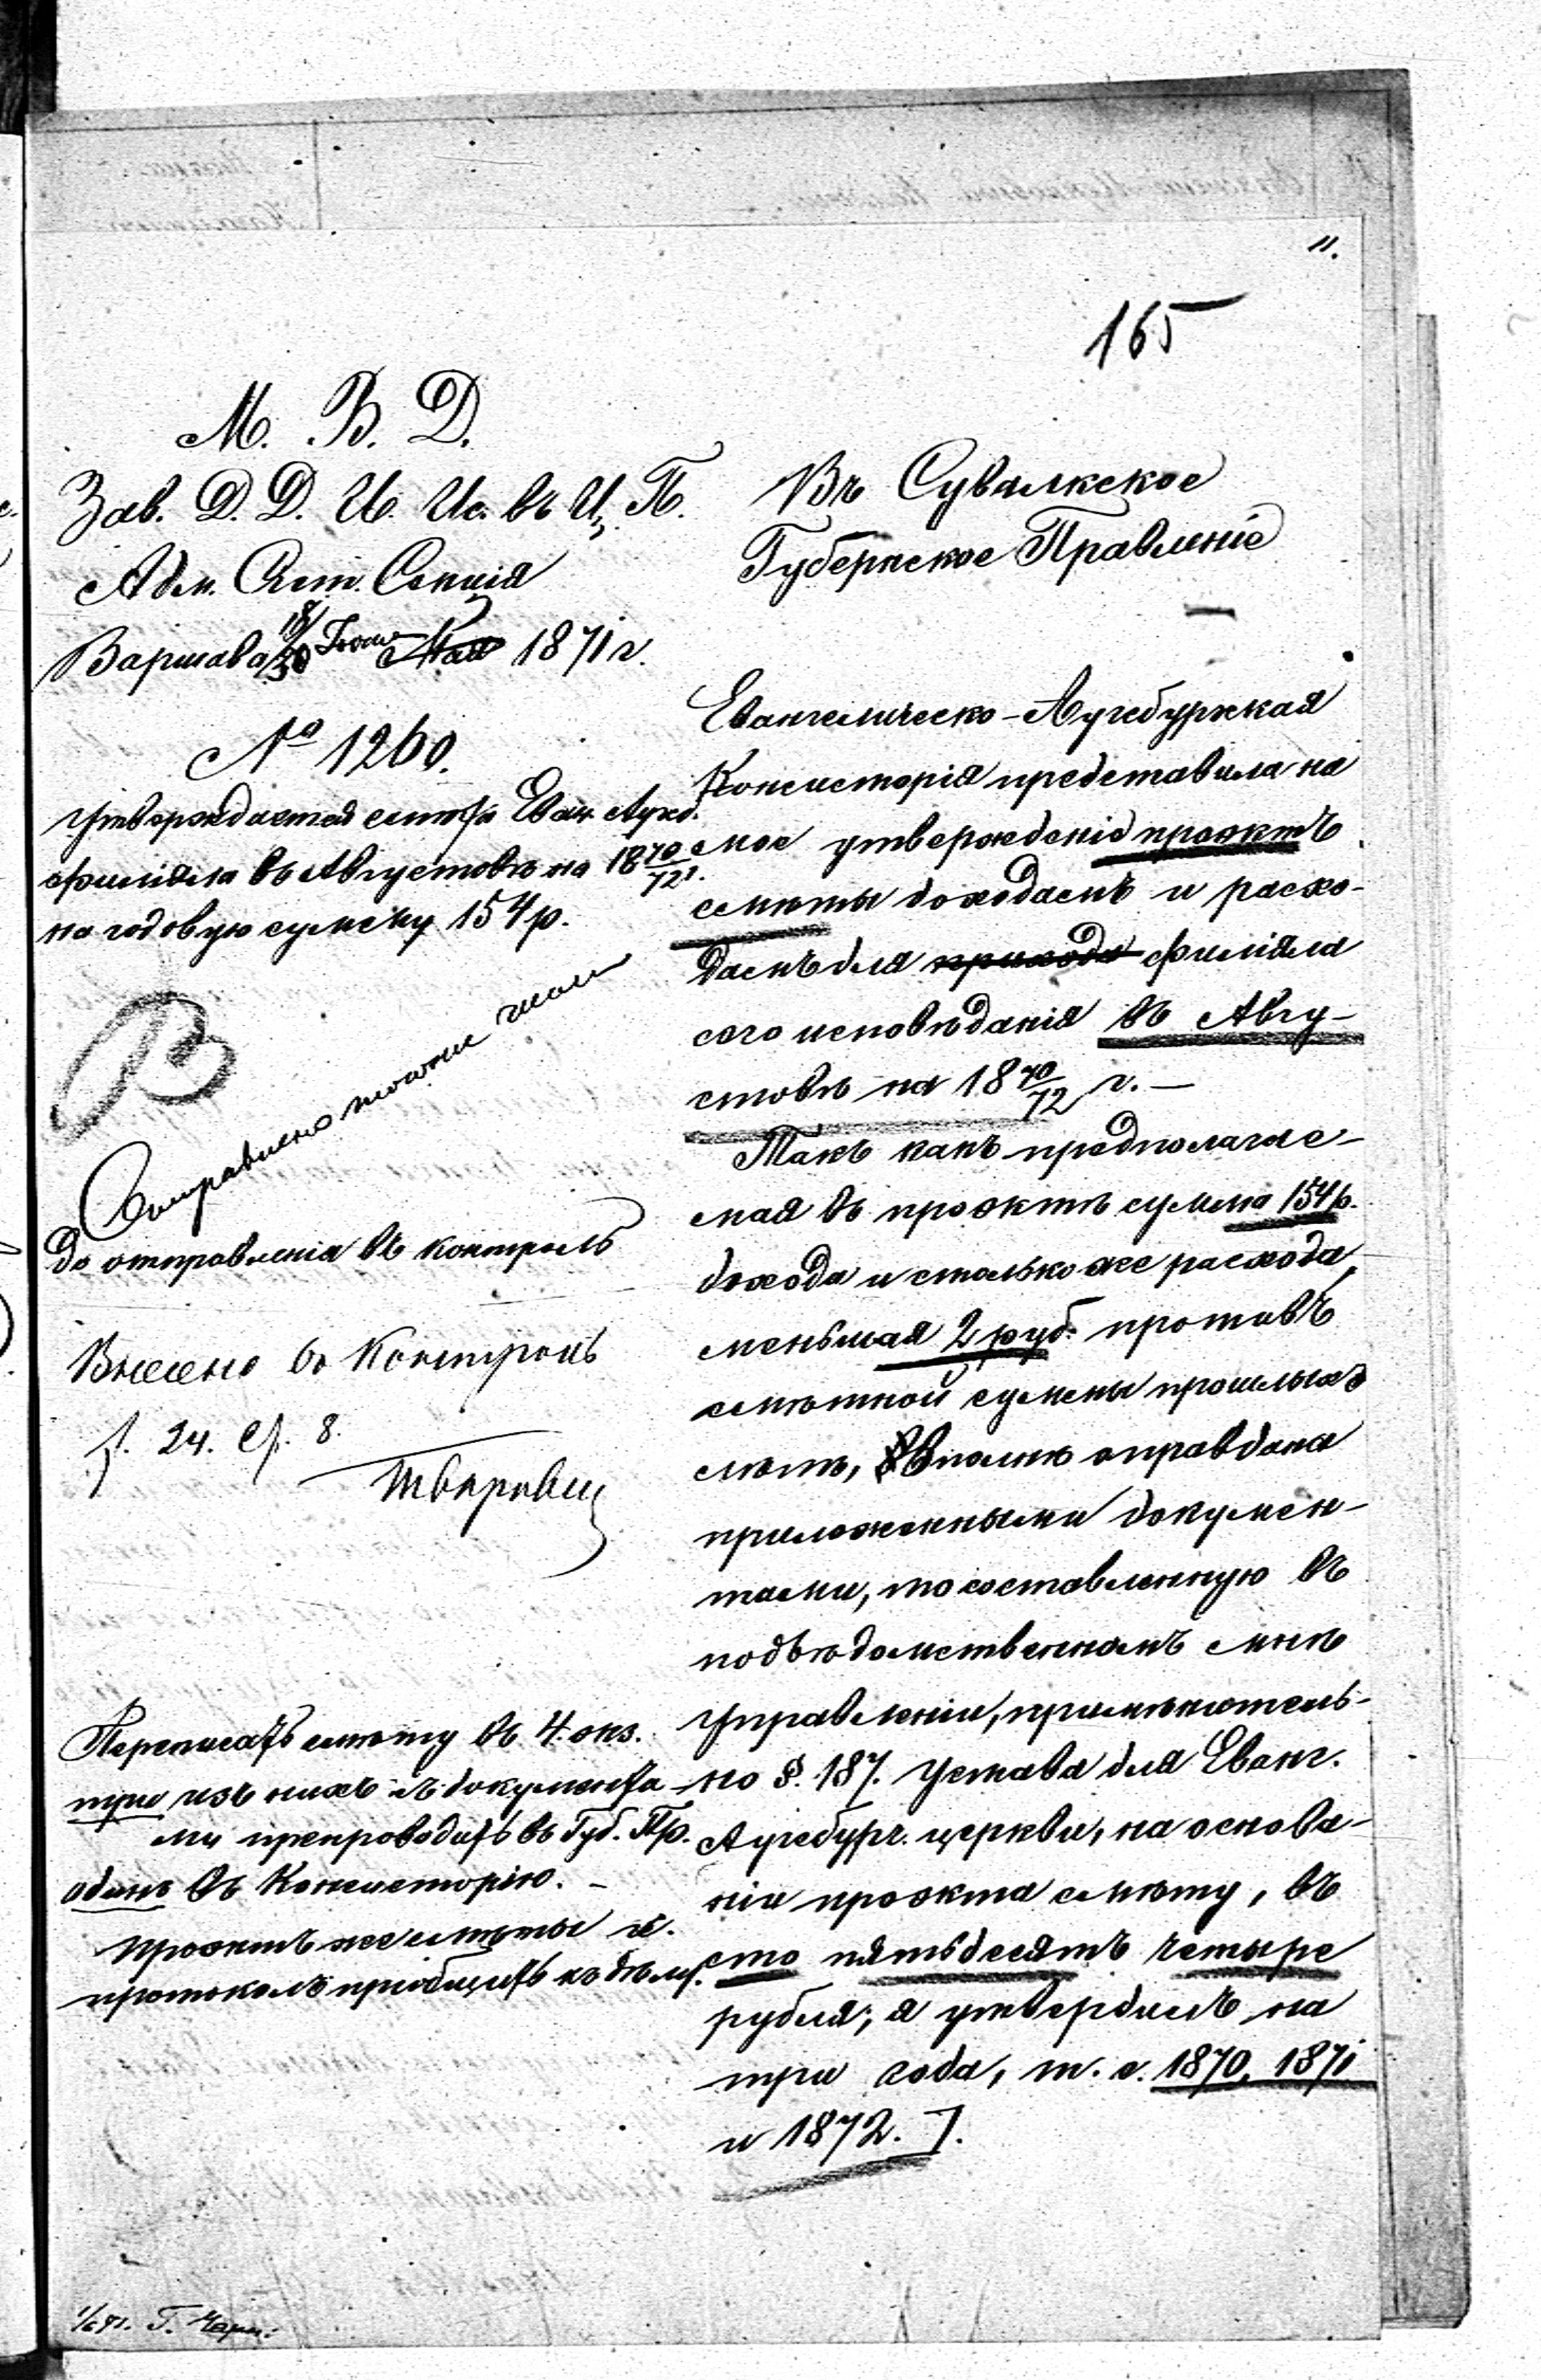 11.
165
М. В. Д.
Зав. Д. Д. И. Ис. въ Ц. П.
Адм. Ост. Секція
Варшава 18/30 Іюня Мая 1871 г.
№ 1260.
Утверждается смѣта Еван. Аугсб.
филіяла въ Августовѣ на 18 70/72 г.
на годовую сумму 154 р.
В
Отправлено тогоже числа
До отправленія въ контроль
Внесено въ Контроль
f. 24. Ср. 8.
Переписать смѣту въ 4. экз.
три изъ нихъ съ документа-
ми препроводить въ Губ. Пр.
одинъ въ Консисторію. –
Проэктъ же смѣты и
протоколъ пріобщить къ дѣлу.
Въ Сувалкское
Губернское Правленіе
Евангелическо-Аугсбургская
Консисторія представила на
мое утвержденіе проэктъ
смѣты доходамъ и расхо-
дамъ для прихода филіяла
сего исповѣданія въ Авгу-
стовѣ на 18 70/72 г. –
Такъ какъ предполагае-
мая въ проэктѣ сумма 154 р.
дохода и столько же расхода,
меньшая 2 руб. противъ
смѣтной суммы прошлыхъ
лѣтъ, вполнѣ оправдана
приложенными докумен-
тами, то составленную въ
подвѣдомственномъ мнѣ
Управленіи, примѣнитель-
но §. 187. Устава для Еванг.
Аугсбург. церкви, на основа-
ніи проэкта смѣту, въ
сто пятьдесятъ четыре
рубля, я утвердилъ на
три года, т. е. 1870, 1871
и 1872. ].
1/6 71. Г. Черн.